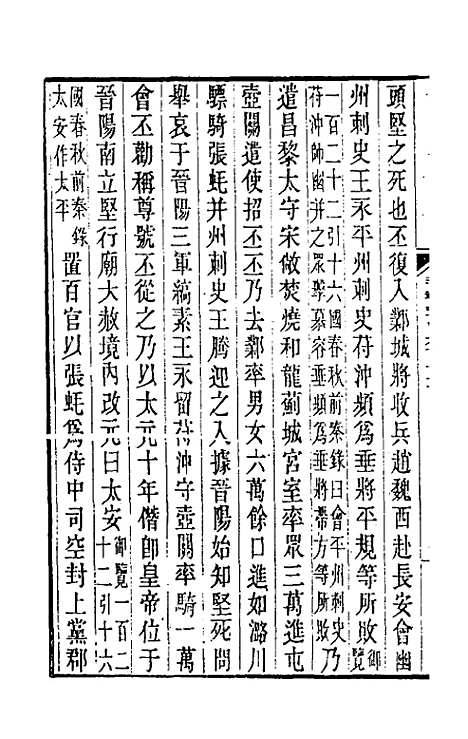 頭堅之死也丕復入鄴城將收兵趙魏西赴長安會幽
州刺史王永平州刺史苻沖頻爲垂將平規等所敗御覽
一百二十二引十六國春秋前秦錄曰會平州刺史乃
苻沖帥幽并之眾擊慕容垂頻爲垂將帶方等所敗
遣昌黎太守宋倣焚燒和龍薊城宮室率眾三萬進屯
壺關遣使招丕丕乃去鄴率男女六萬餘口進如潞川
驃騎張蚝并州刺史王騰迎之入據晉陽始知堅死問
舉哀于晉陽三軍縞素王永留苻沖守壺關率騎一萬
會丕勸稱尊號丕從之乃以太元十年僭卽皇帝位于
晉陽南立堅行廟大赦境內改元曰太安御覽一百二
十二引十六
國春秋前秦錄
太安作太平
置百官以張蚝爲侍中司空封上黨郡